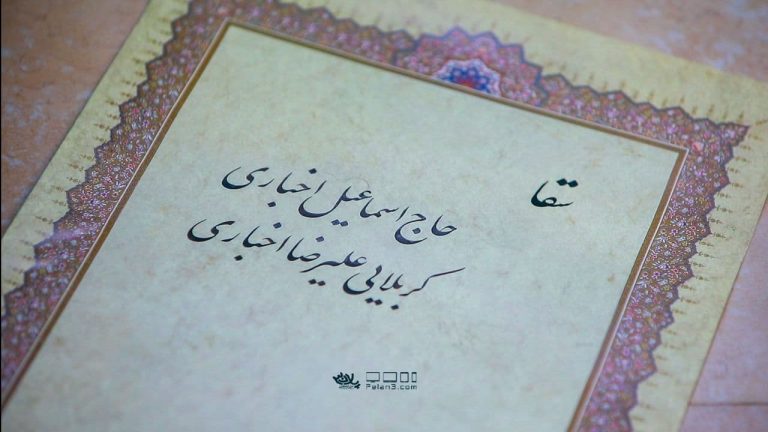 سقا
حاج اسماعیل اخباری
کربلایی علیرضا اخباری
Pelan3.com